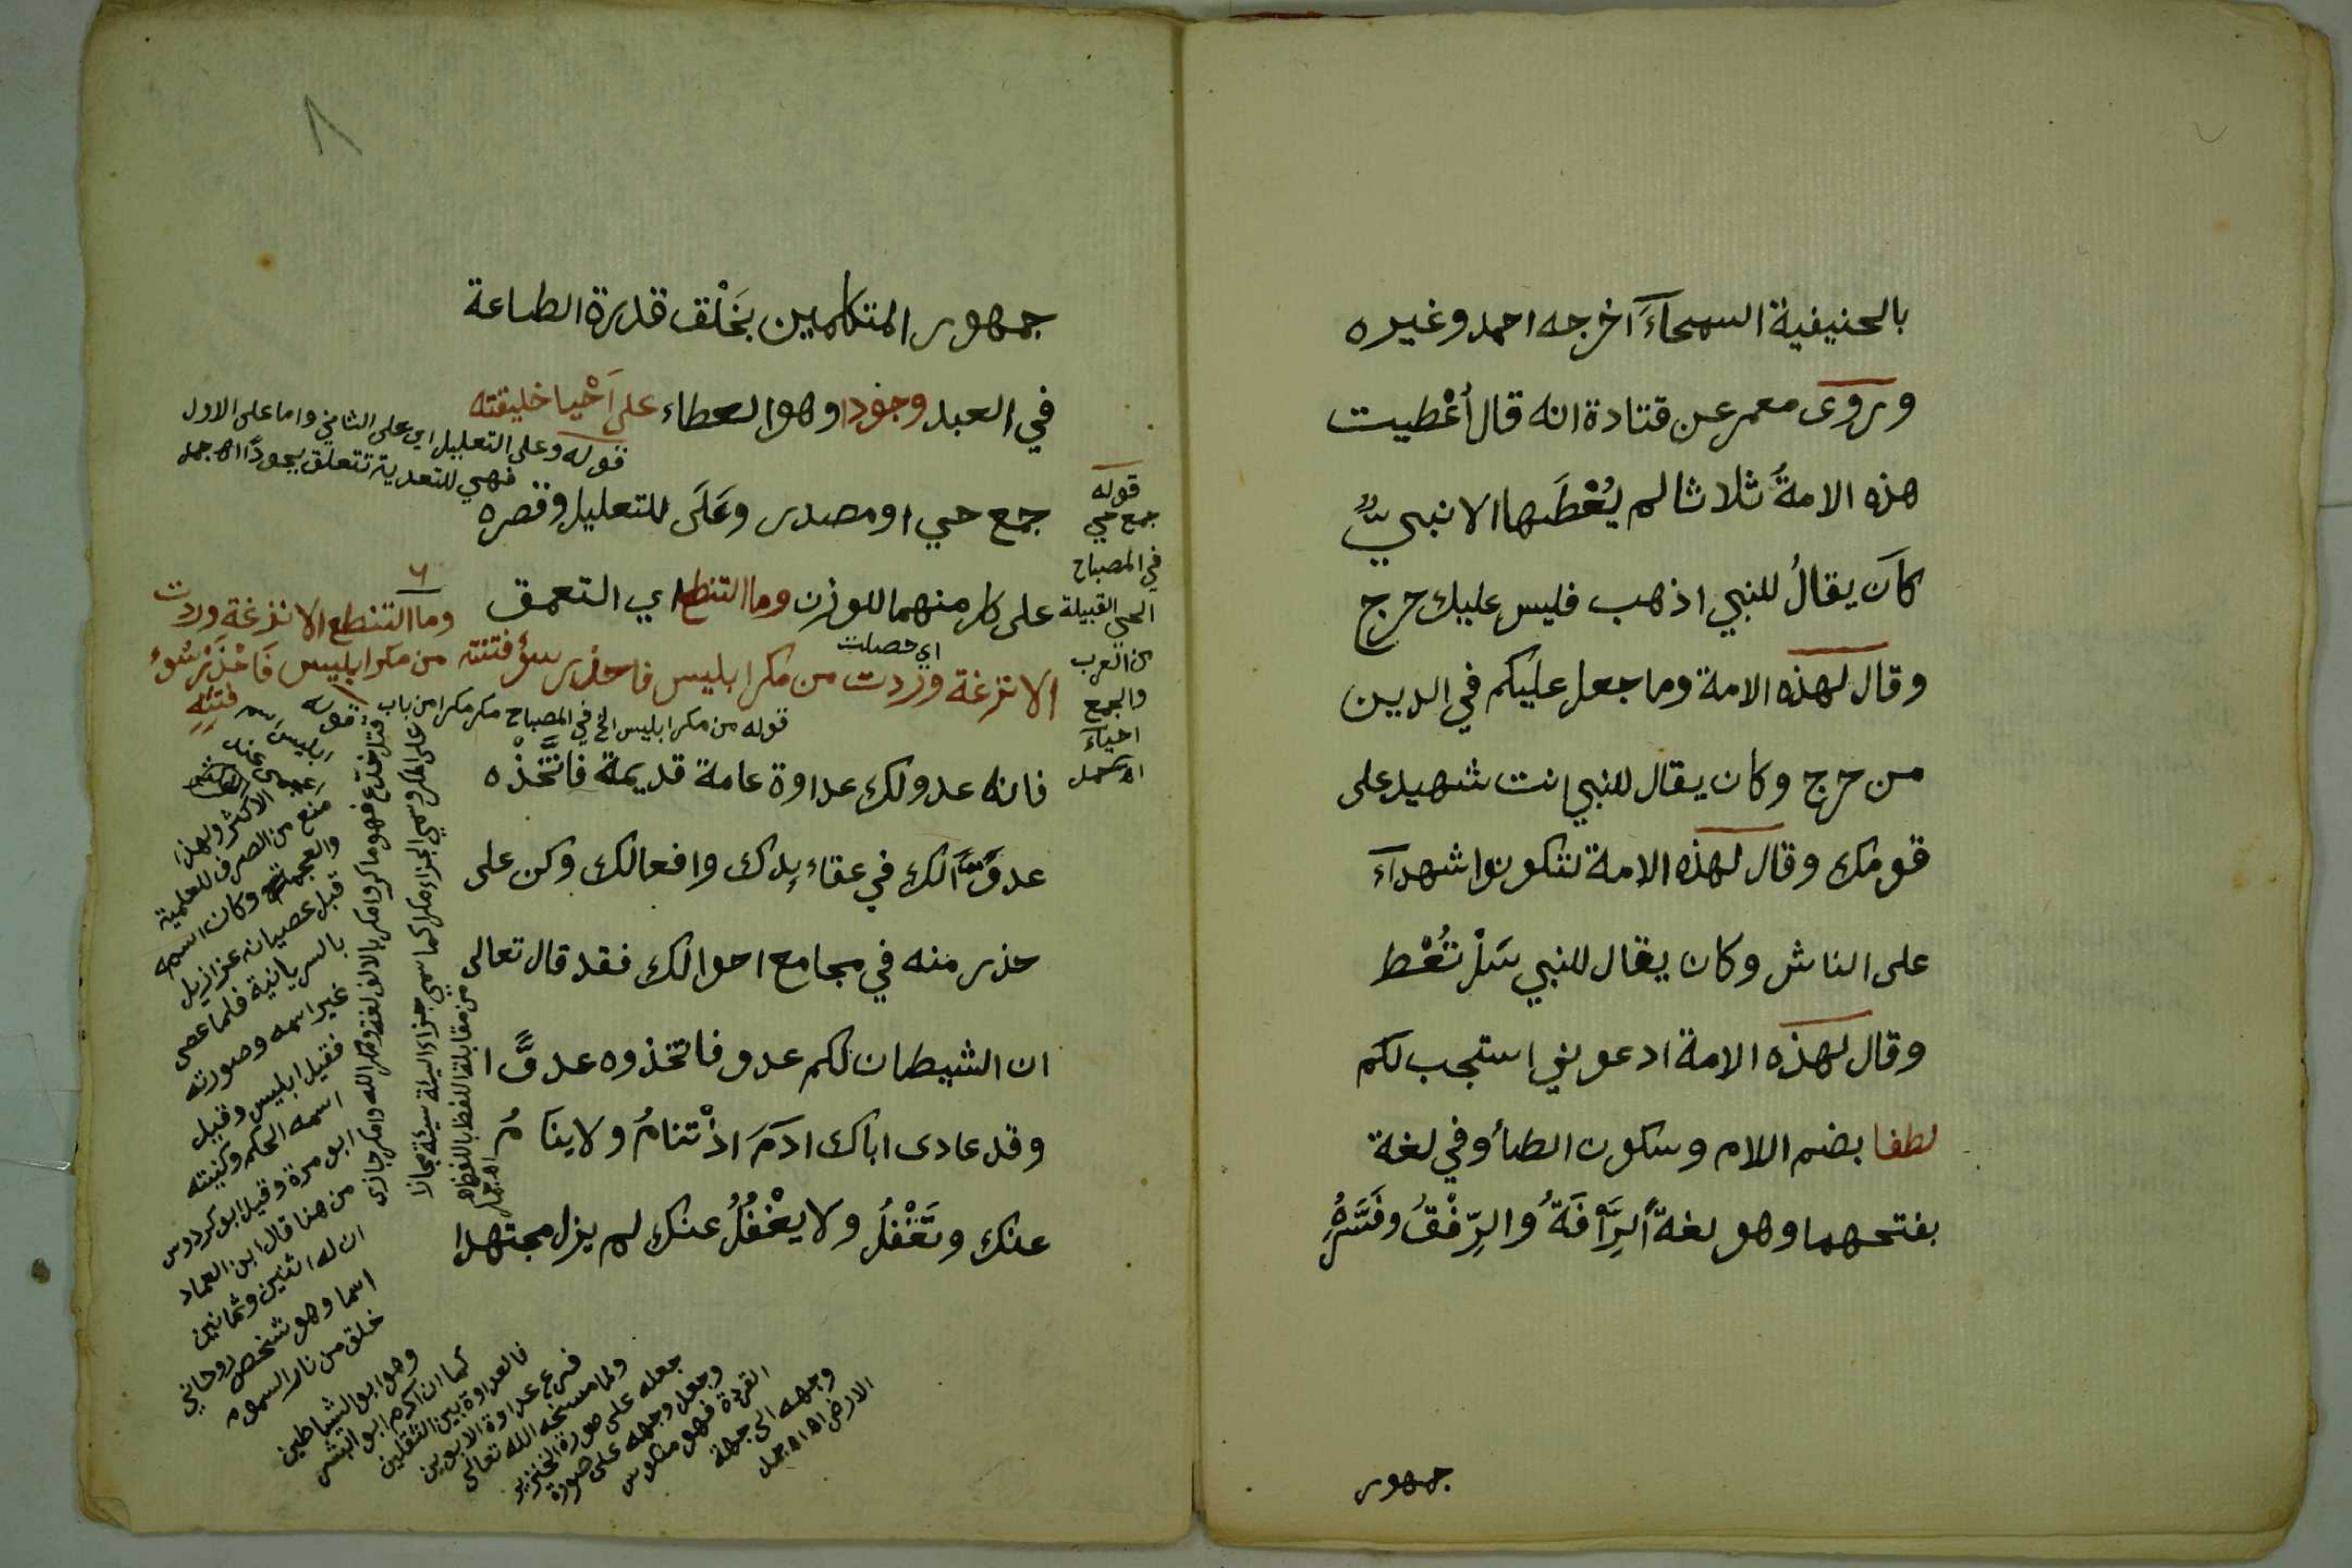 بالحنيفية السمحآءَ اخرجه احمد وغيره
وروى معمر عن قتادة انه قال أُعْطيت
هذه الامةُ ثلاثا لم يُعْطَها الا نبيٌّ
كاَن يقالُ للنبي اذهب فليس عليك حرج
وقال لهذه الامة وما جعل عليكم في الدين
من حرج وكان يقال للنبي انت شهيد على
قومك وقال لهذه الامة لتكونوا شهدآءَ
على الناس وكان يقال للنبي سَلْ تُعْط
وقال لهذه الامة ادعوني استجب لكم
لطفا بضم اللام وسكون الطأ وفي لغة
بفتحهما وهو لغةً الرَّأفَةُ والرِّفْقُ وفَسَّرَهُ
جمهور
٨
جمهور المتكلمين بخَلْق قدرة الطاعة
في العبد وجودا وهو العطاء على اَحْيا خليقته
جمع حي او مصدر وعَلَى للتعليل وقصره
على كل منهما للوزن وما التنطع اي التعمق
الا نزغة وَرَدت من مكر ابليس فاحذر سوُ فتنته
اي حصلت
فانه عدو لك عداوة عامة قديمة فاتَّخذْه
عدوًّا لك في عقاءِدك وافعالك وكن على
حذر منه في مجامع احوالك فقد قال تعالى
ان الشيطان لكم عدو فاتخذوه عدوًّا
وقد عادى اباك ادمَ اذْ تنامُ ولا ينَامُ
عنك وتَغْفلُ ولا يغْفُلُ عنك لم يزل مجتهدا
قوله
جمع حي
في المصباح
الحي القبيلة
من العرب
والجمع
احيآء
اهـ جمل
قوله وعلى التعليل اي على الثاني واما على الاول
فهي للتعدية تتعلق بجودًا اهـ جمل
وما التنطع الا نزغة وردت
من مكر ابليس فَاحْذَرْ سُوءَ
فتنتِهِ
قوله من مكر ابليس الخ في المصباح مكر مكرا من باب
قتل خدع فهو ماكر وامكر بالالف لغة ومكر الله وامكر جازى
على المكر وسمي الجزاء مكرا كما سمي جزاء السيئة سيئة مجازا
من مقابلة اللفظ باللفظ اهـ
اهـ جمل
قوله
ابليس
الاكثر ولهذا
منع من الصرف للعلمية
والعجمة وكان اسمه
قبل عصيانه عزازيل
بالسريانية فلما عصى
غير اسمه وصورته
فقيل ابليس وقيل
اسمه الحكم وكنيته
ابو مرة وقيل ابو كردوس
من هنا قال ابن العماد
ان له اثنين وثمانين
اسما وهو شخص روحاني
خلق من نار السموم
وهو ابو الشياطين
كما ان آدم ابو البشر
فالعداوة بين الثقلين
فرع عداوة الابوين
ولما مسخه الله تعالى
جعله على صورة الخنزير
وجعل وجهه على صورة
القردة فهو منكوس
وجهه الى جهة
الارض اهـ اهـ جمل